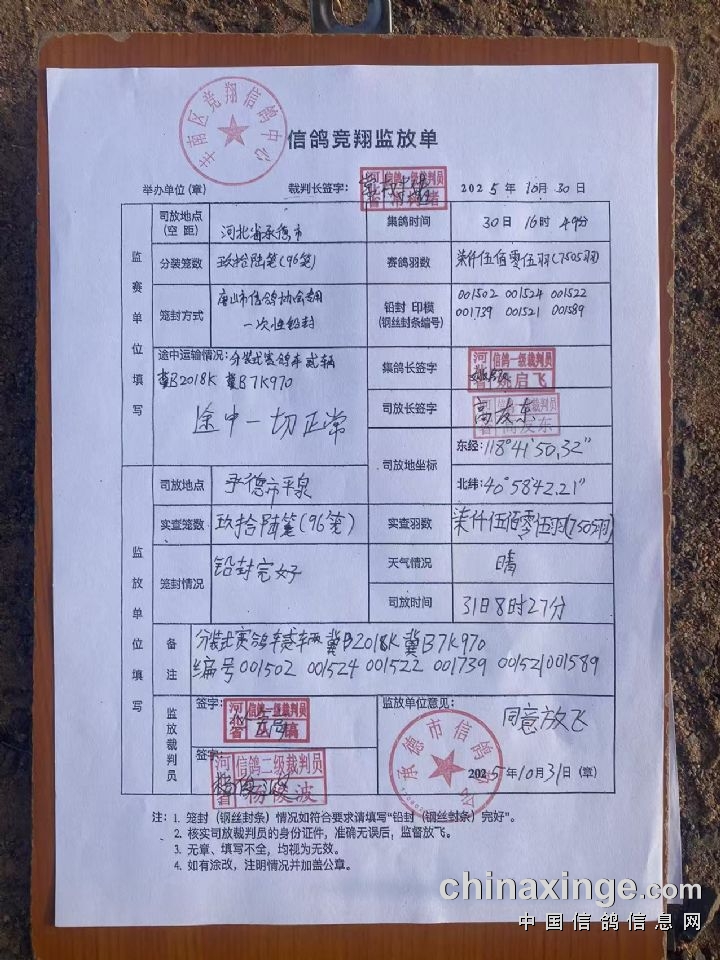 丰南区竞翔信鸽中心
信鸽竞翔监放单
举办单位(章) 裁判长签字: 信鸽一级裁判员 2025年10月30日
监赛单位填写
司放地点(空距) 河北省承德市 集鸽时间 30日16时49分
分装笼数 玖拾陆笼(96笼) 赛鸽羽数 柒仟伍佰零伍羽(7505羽)
笼封方式 唐山市信鸽协会专用一次性铅封 铅封 印模(钢丝封条编号) 001502 001524 001522
001739 001521 001589
途中运输情况: 分装式赛鸽车贰辆
冀B2018K 冀B7K970
途中一切正常
集鸽长签字 河北省 信鸽一级裁判员 姚启飞
司放长签字 高友东
司放地坐标 东经: 118°41′50.32″
北纬: 40°58′42.21″
监放单位填写
司放地点 承德市平泉
实查笼数 玖拾陆笼(96笼) 实查羽数 柒仟伍佰零伍羽(7505羽)
笼封情况 铅封完好 天气情况 晴
司放时间 31日8时27分
备注 分装式赛鸽车贰辆冀B2018K 冀B7K970
编号001502 001524 001522 001739 001521 001589
监放裁判员
签字: 河北省 信鸽一级裁判员
签字: 河北省 信鸽二级裁判员
监放单位意见: 同意放飞
承德市信鸽协会
2025年10月31日(章)
注: 1. 笼封(钢丝封条)情况如符合要求请填写“铅封(钢丝封条)完好”。
2. 核实司放裁判员的身份证件,准确无误后,监督放飞。
3. 无章、填写不全,均视为无效。
4. 如有涂改,注明情况并加盖公章。
chinaxinge.com
中国信鸽信息网